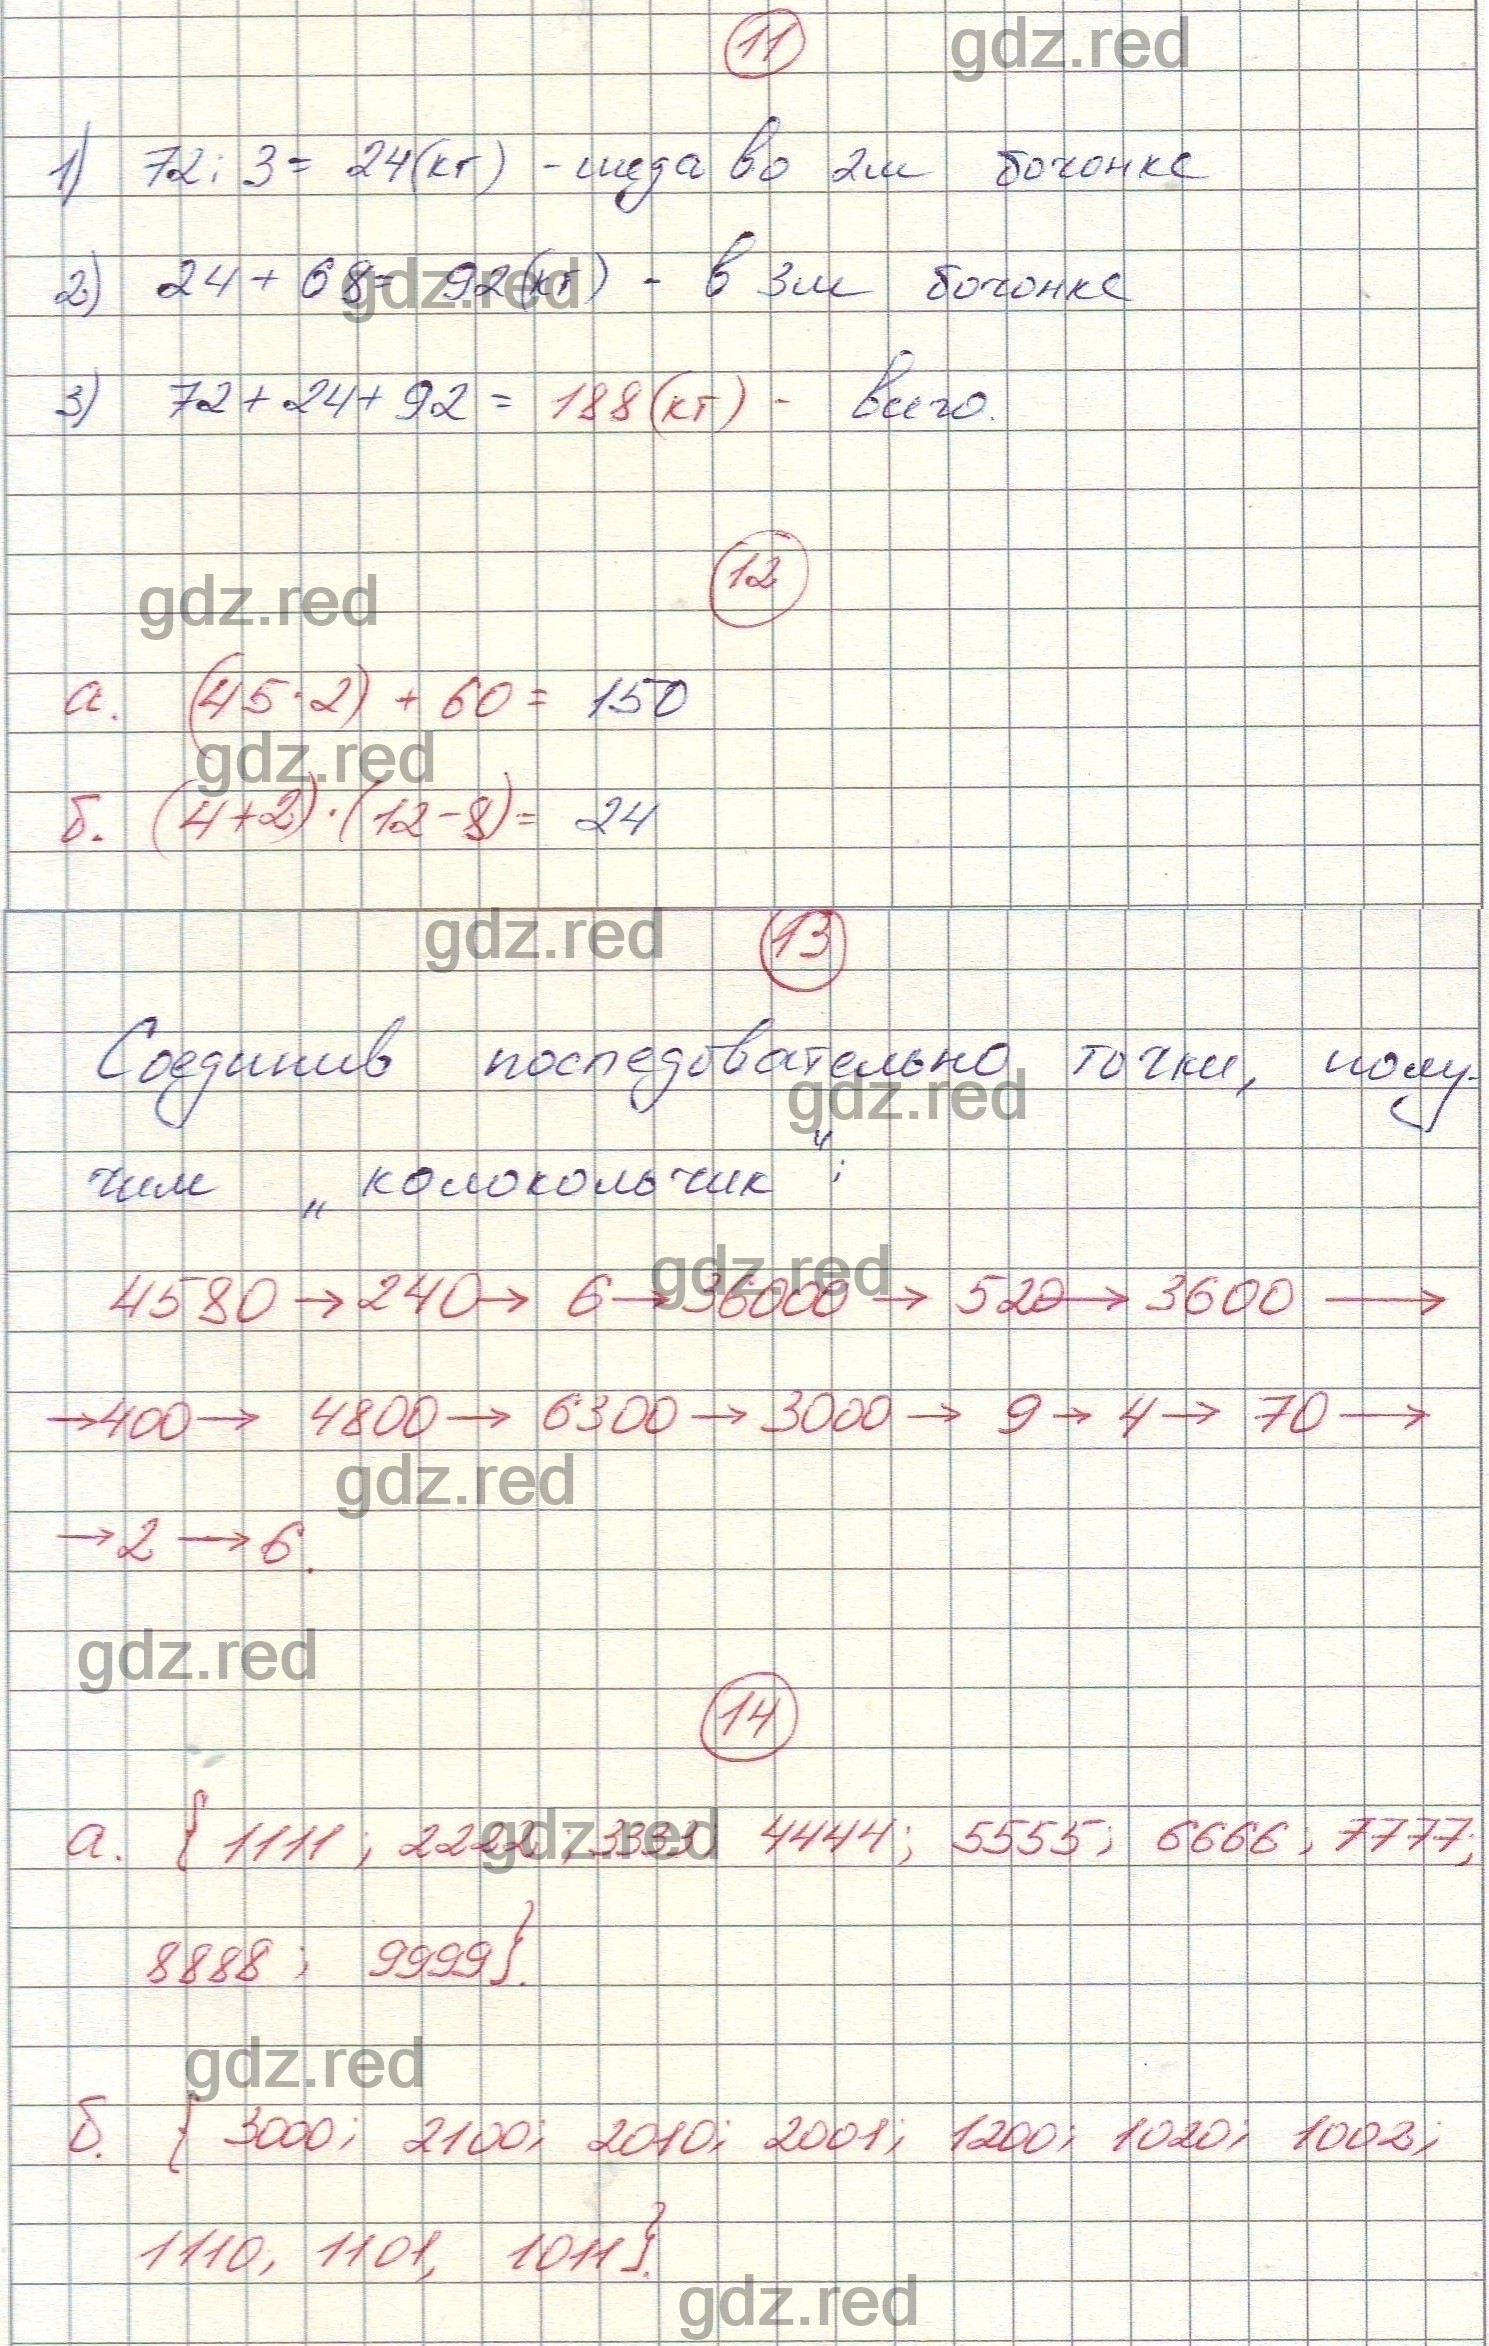 11
gdz.red
1) 72 : 3 = 24 (кг) - меда во 2м бочонке
2) 24 + 68 = 92 (кг) - в 3м бочонке
gdz.red
3) 72 + 24 + 92 = 188 (кг) - всего.
12
gdz.red
а. (45 · 2) + 60 = 150
gdz.red
б. (4 + 2) · (12 - 8) = 24
gdz.red
13
Соединив последовательно точки, полу-
gdz.red
чим „колокольчик“:
gdz.red
4580 → 240 → 6 → 36000 → 520 → 3600 →
→ 400 → 4800 → 6300 → 3000 → 9 → 4 → 70 →
gdz.red
→ 2 → 6.
gdz.red
14
а. {1111; 2222; 3333; 4444; 5555; 6666; 7777;
gdz.red
8888; 9999}.
gdz.red
б. {3000; 2100; 2010; 2001; 1200; 1020; 1002;
1110, 1101, 1011}.
gdz.red